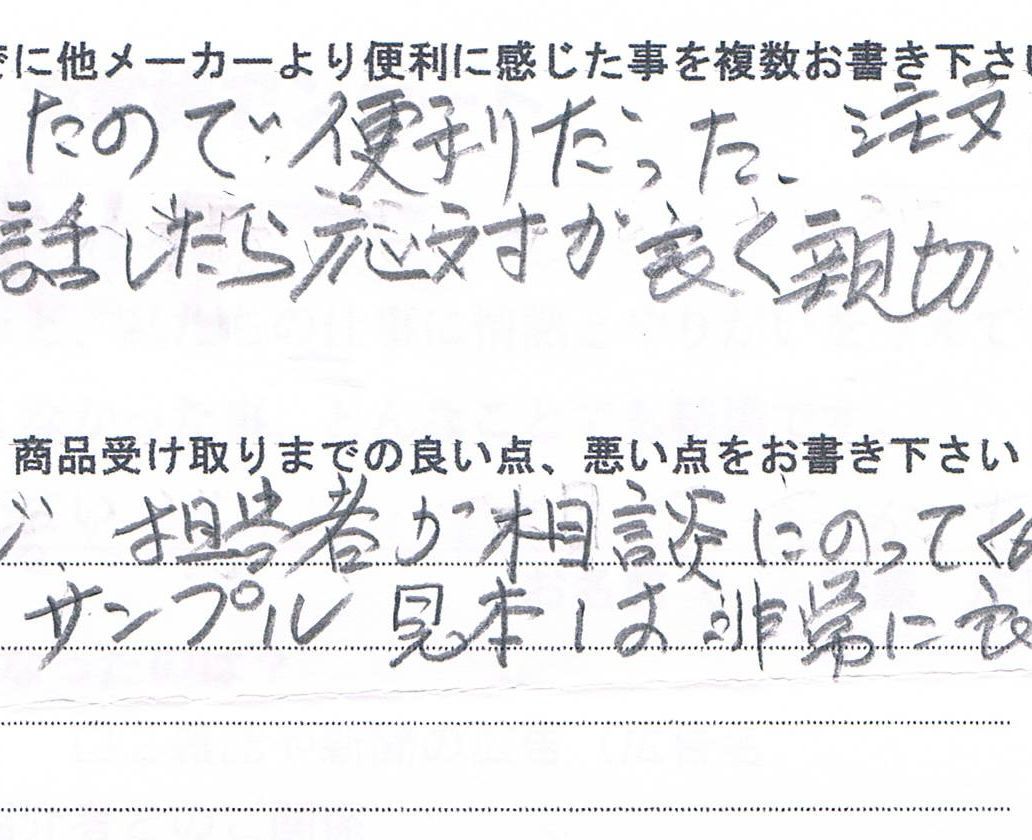 に他メーカーより便利に感じた事を複数お書き下さい
たので便利だった、注文
話したら応対が良く親切
商品受け取りまでの良い点、悪い点をお書き下さい
担当者が相談にのってく
サンプル見本は非常に良